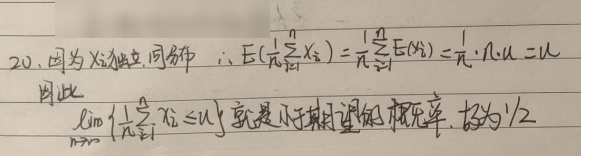 20. 因为 Xi 独立, 同分布 ∴ E(1/n ∑_{i=1}^{n} Xi) = 1/n ∑_{i=1}^{n} E(Xi) = 1/n · n · u = u
因此
lim_{n→∞} {1/n ∑_{i=1}^{n} Xi ≤ u} 就是小于期望的概率. 故为 1/2